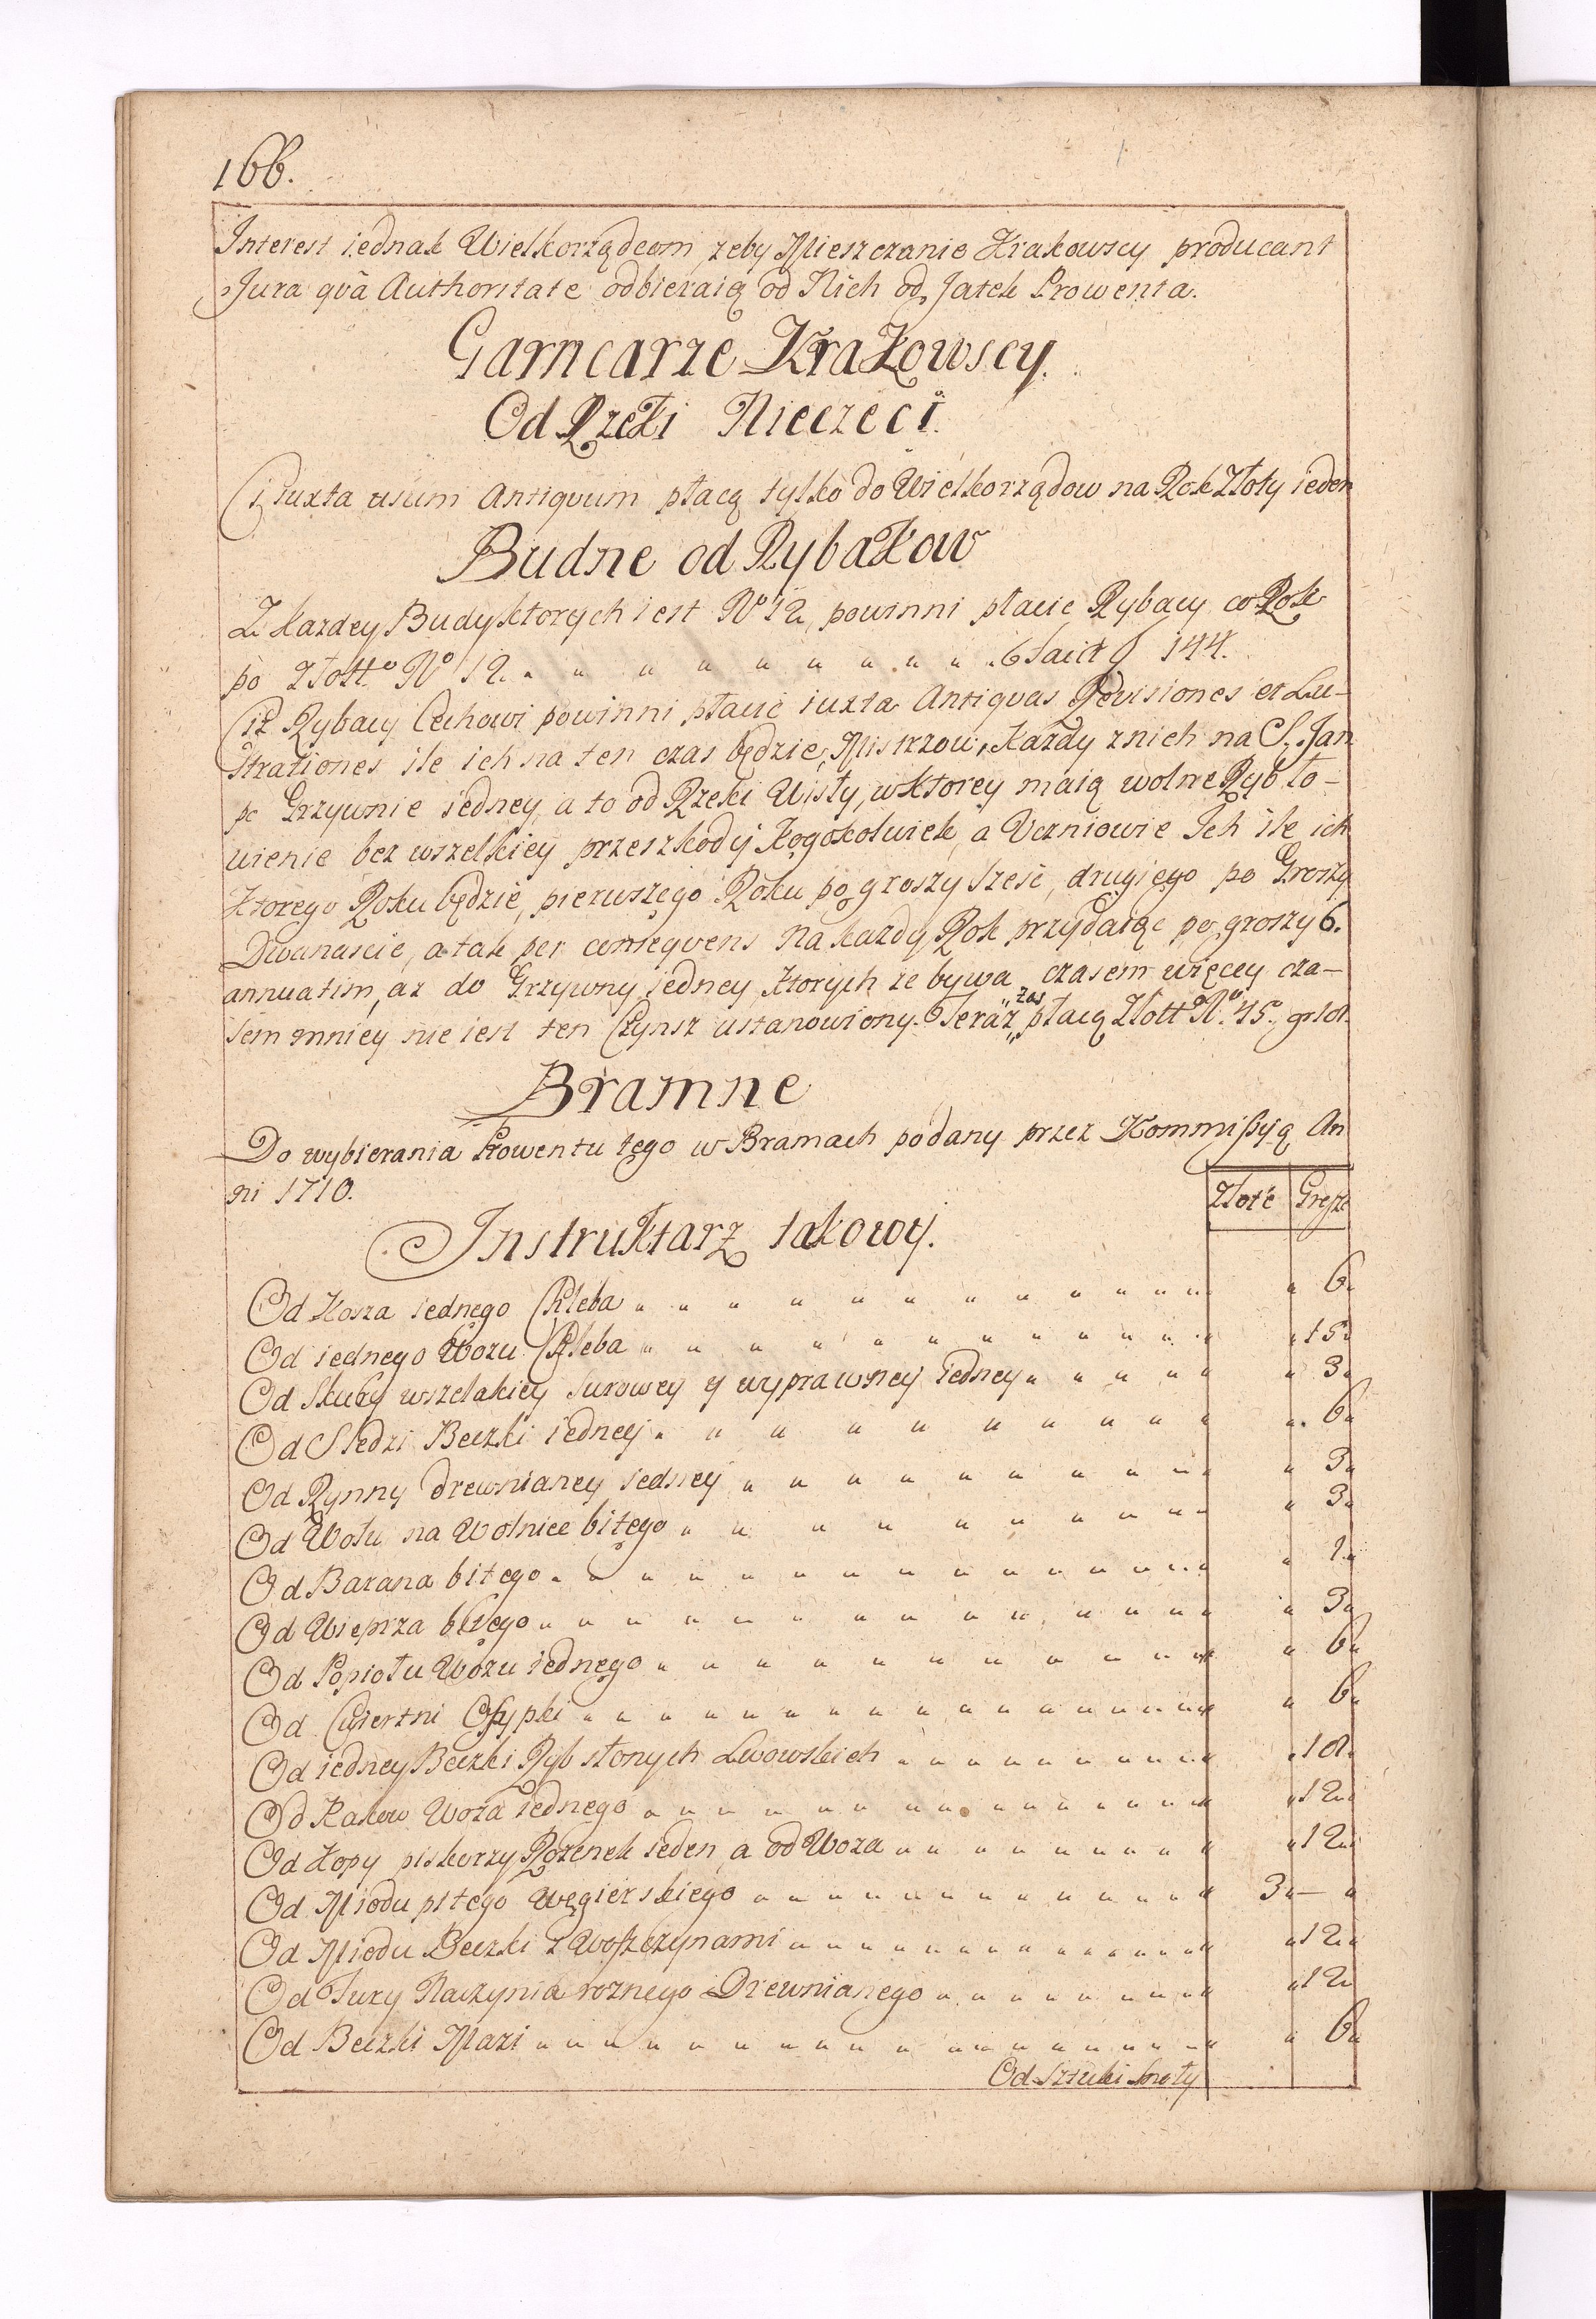 166.
Interest iednak Wielkorządcom, zeby Mieszczanie Krakowscy producant
Jura quâ Authoritate odbieraią od Nich od Jatek Prowenta.
Garncarze Krakowscy.
Od Rzeki Nieczeci.
Ci iuxta usum Antiquum płacą tylko do Wielkorządow na Rok Złoty ieden
Budne od Rybakow
Z kazdey Budy ktorych iest No 12, powinni płacic Rybacy co Rok
po Złott.o No 12. " " " " " " " " " facit f 144.
Ciż Rybacy Cechowi powinni płacić iuxta Antiquas Revisiones et Lu-
strationes ile ich na ten czas będzie, Mistrzow, Kazdy z nich na S. Jan
po Grzywnie iedney, a to od Rzeki Wisły, w ktorey maią wolne Ryb ło-
wienie bez wszelkiey przeszkody kogokolwiek, a Uczniowie Ich ile ich
ktorego Roku będzie, pierwszego Roku po groszy sześć, drugiego po Groszy
Dwanascie, a tak per consequens na kazdy Rok przydaiąc po groszy 6.
annuatim, az do Grzywny iedney, ktorych ze bywa czasem więcey cza-
sem mniey nie iest ten Czynsz ustanowiony. Teraz zas płacą Złott.o No. 45. gr 18.
Bramne
Do wybierania Prowentu tego w Bramach podany przez Kommissyią An
ni 1710.
Złote Grosze
Instruktarz takowy.
Od Kosza iednego Chleba " " " " " " " " " " " " 6"
Od iednego Wozu Chleba " " " " " " " " " " " " 15"
Od Skury wszelakiey surowey y wyprawney iedney " " " " " " 3"
Od Sledzi Beczki iedney " " " " " " " " " " " 6"
Od Rynny drewnianey iedney " " " " " " " " " " 3"
Od Wołu na Wolnice bitego " " " " " " " " " " 3"
Od Barana bitego " " " " " " " " " " " " " 1"
Od Wieprza bitego " " " " " " " " " " " " " 3"
Od Popiołu Wozu iednego " " " " " " " " " " " 6"
Od Cwiertni Osypki " " " " " " " " " " " " " 6"
Od iedney Beczki Ryb słonych Lwowskich " " " " " " " " " 18"
Od Rakow Woza iednego " " " " " " " " " " " 12"
Od Kopy piskorzy Rozenek ieden, a od Woza " " " " " " " " 12"
Od Miodu pitego Węgierskiego " " " " " " " " " " 3" — "
Od Miodu Beczki z Woszczynami " " " " " " " " " " 12"
Od Fury Naczynia roznego Drewnianego " " " " " " " 12"
Od Beczki Mazi " " " " " " " " " " " " " 6"
Od Sztuki Smoły